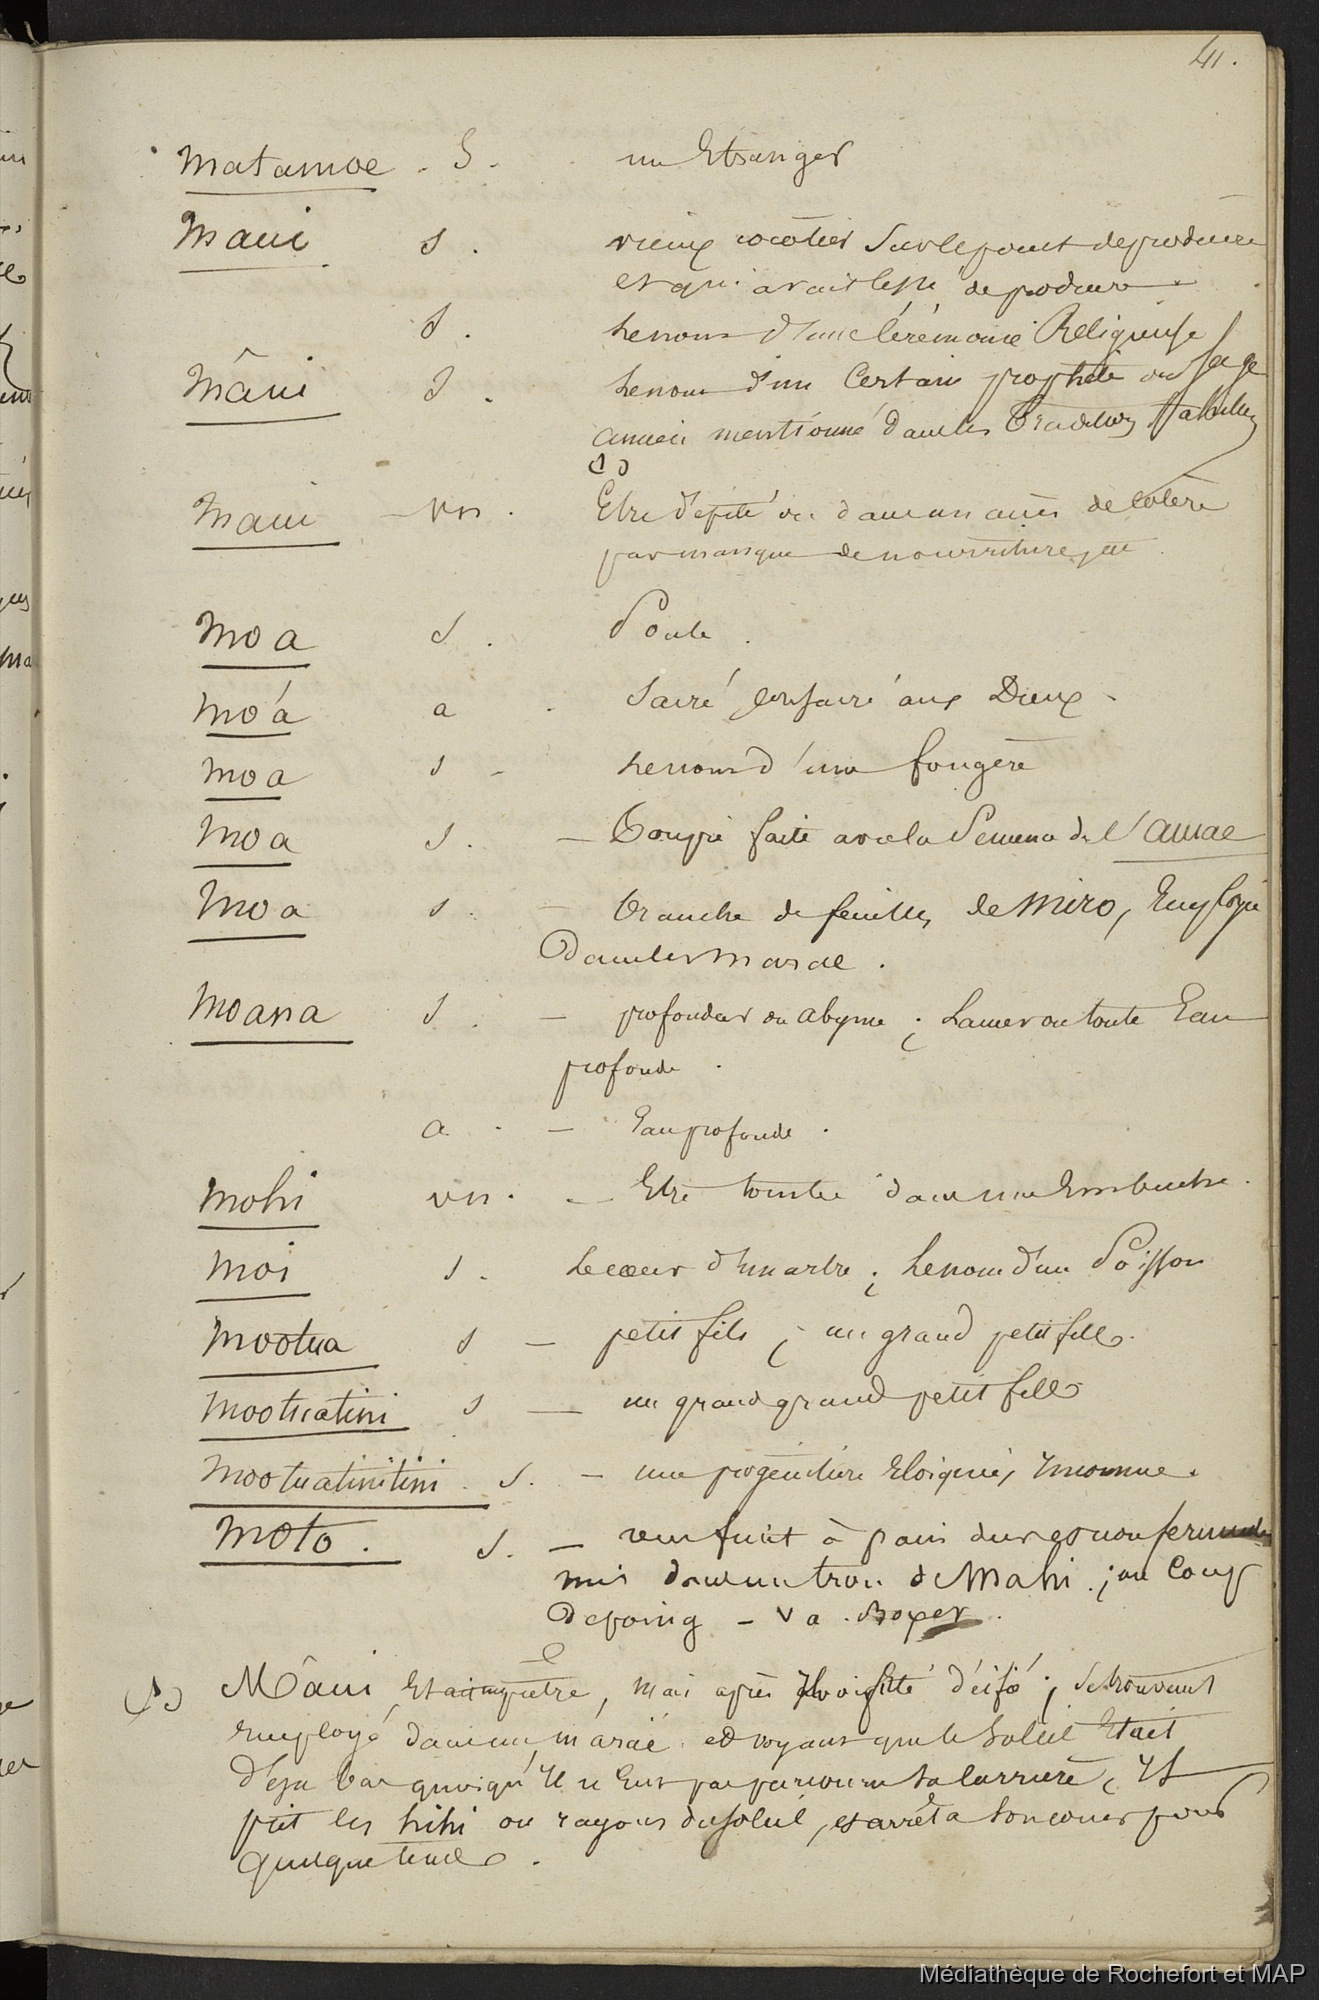 41.
Matamoe . S. un Etranger
Maui s. vieux cocotier sur le point de produire
et qui avait cessé de produire
s. Le nom d'une Cérémonie Religieuse
Mâui s. Le nom d'un Certain prophète ou Sage
ancien mentionné dans les
(1)
Maui - vn. Etre dépité ou dans un accès de Colère
par manque de nourriture,
Moa s. Poule.
Mo'a a. Sacré consacré aux Dieux.
Moa s - Le nom d'une fougère
Moa s. - Toupie faite avec la Semence de l'Amae
Moa s. - branche de feuilles de Miro, Employée
Dans les Marae.
Moana s. - profondeur ou abyme ; La mer ou toute Eau
profonde.
a. - Eau profonde.
Mohi vn. - Etre tombé dans une Embuche.
Moi s. Le cœur d'un arbre ; Le nom d'un Poisson
Mootua s - petit fils ; un grand petit fils.
Mootuatini s - un grand grand petit fils
Mootuatinitini s. - une progéniture Eloignée, Innomme.
Moto. s. - fruit à pain dur et non
mis dans un trou de Mahi ; un Coup
De poing - va. Boxer.
(1) Mâui Etait , mais après ; se trouvant
employé dans un márae et voyant que le Soleil Etait
Déja bas quoiqu'Il n'Eut pas parcouru sa Carrière, Il
prit les hihi ou rayons du soleil, et arrêta son cours pour
quelque tems.
Médiathèque de Rochefort et MAP